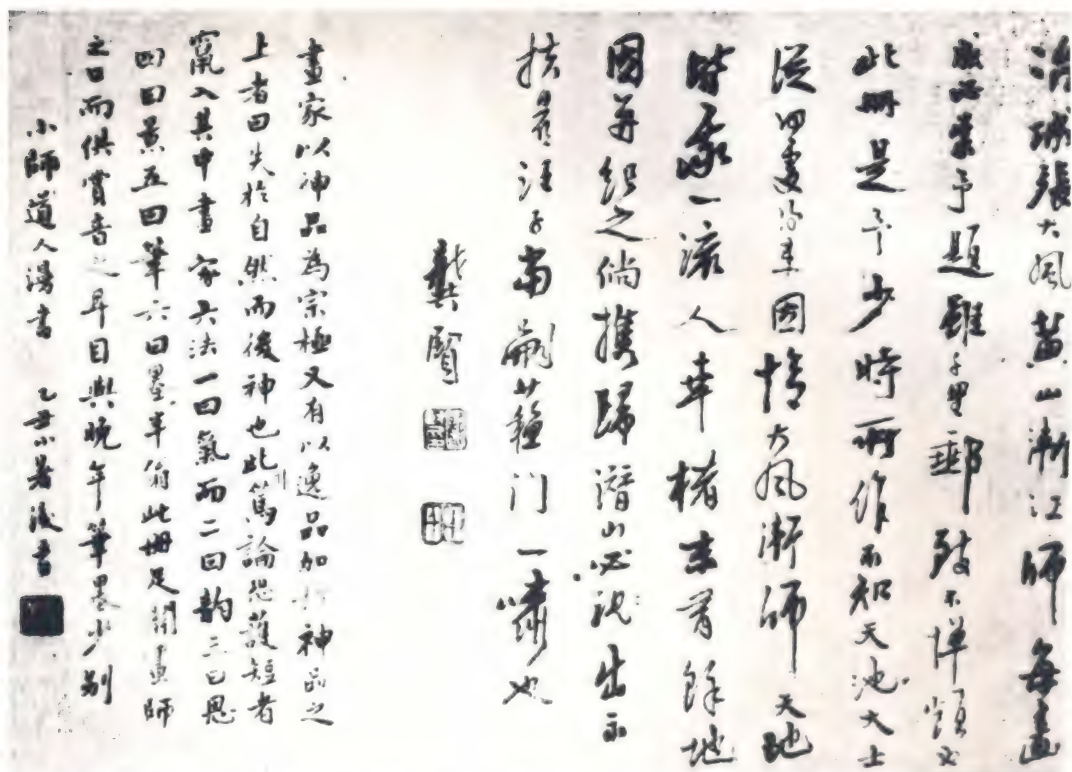 冶城張大風黃山漸江師每畫
成必索予題雖千里郵致不憚煩也
此冊是予少時所作不知天池大士
從何處得來因憶大風漸師天地
時来一滾人幸楮末有餘地
因并紀之倘攜歸潛山必祝出示
扶晨汪子當嗣蘇門一嘯也
龔賢
畫家以神品為宗極又有以逸品加於神品之
上者曰失於自然而後神也此篤論恐護短者
竄入其中畫家六法一曰氣而二曰韵三曰思
四曰景五曰筆六曰墨半翁此冊足開畫師
之口而供賞音之耳目與晚年筆墨少別
小師道人湯書 乙丑小暑後書